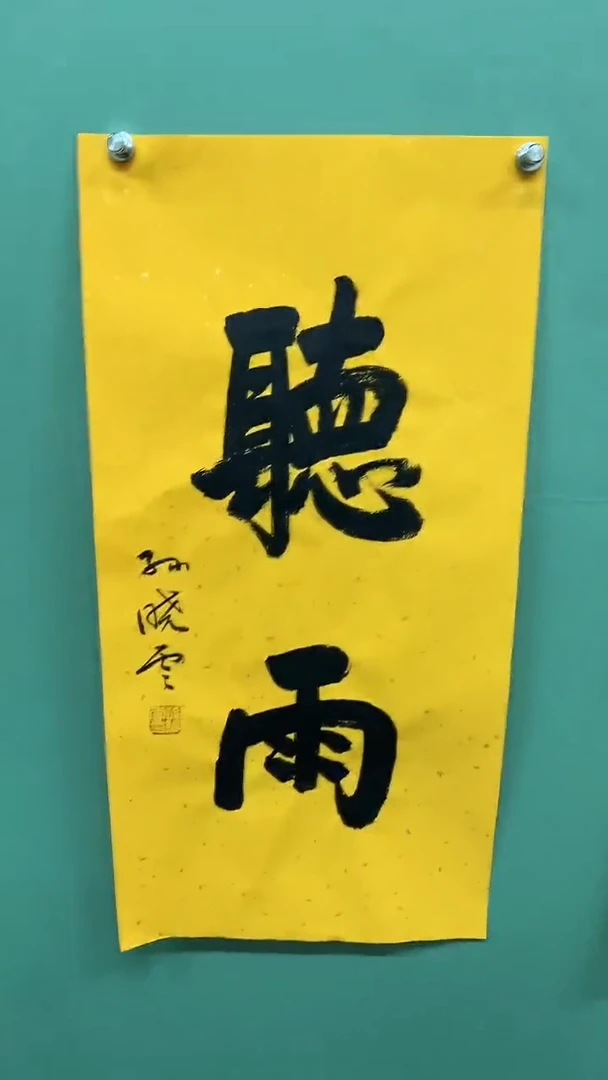 聽雨
孙晓雲